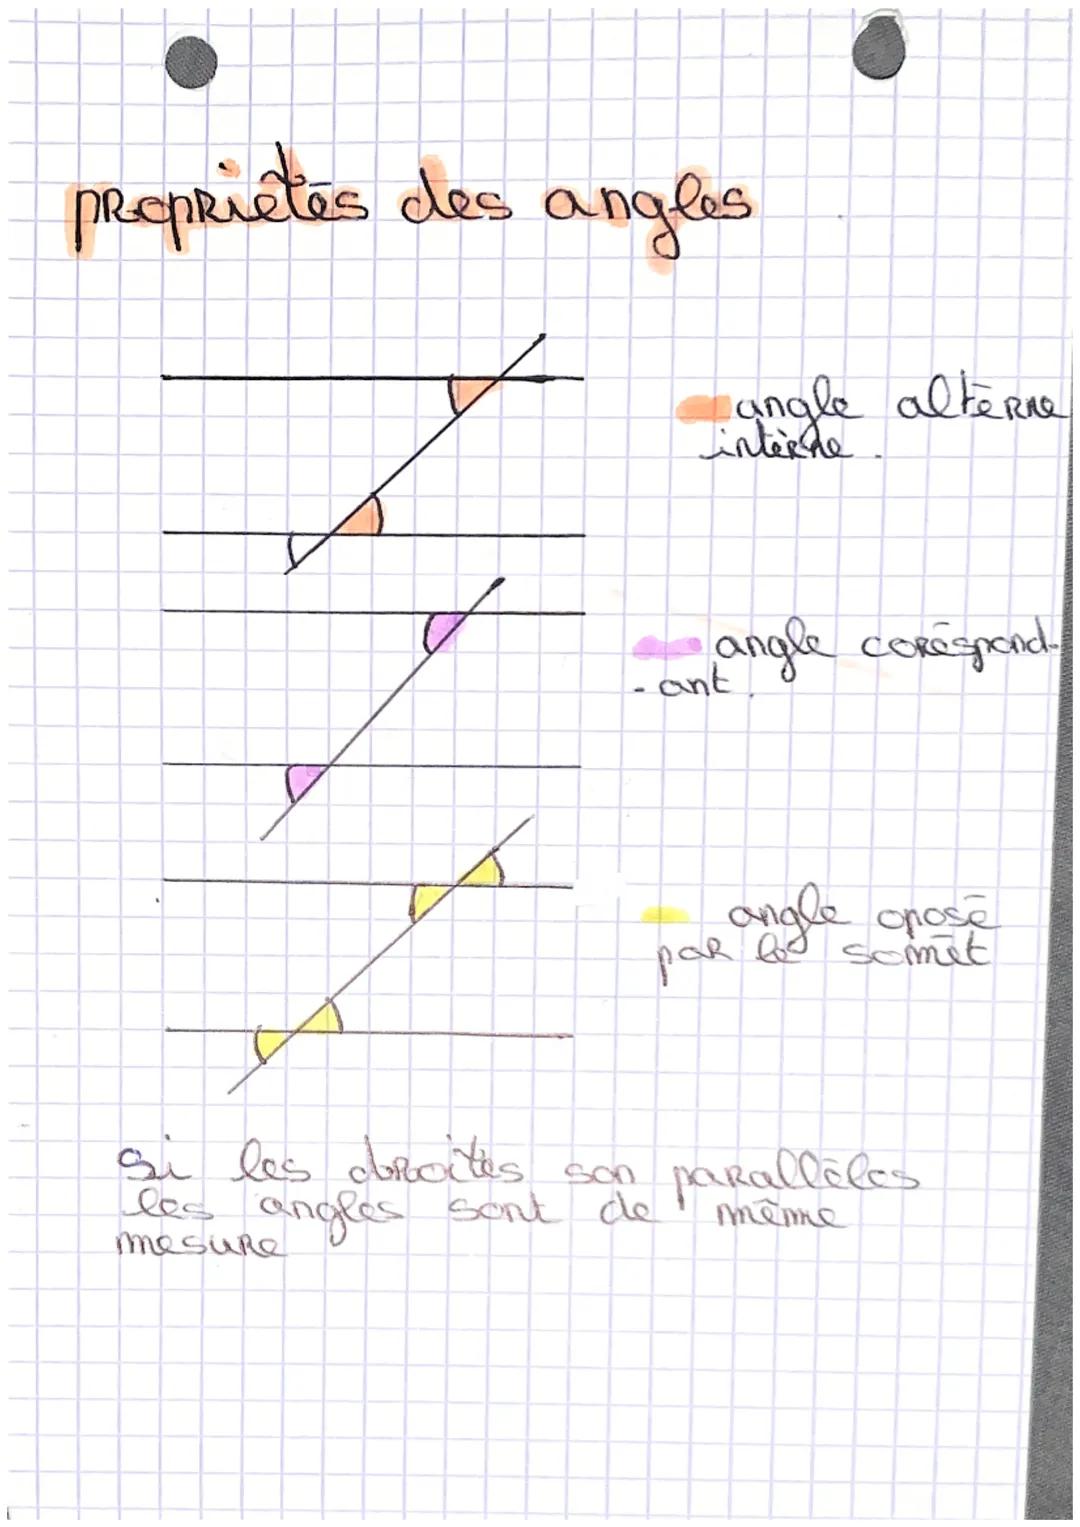 propriētēs des angles
angle altērne
intèrne.
angle corēspond-
-ant.
angle oposē
par le somēt
Si les droites son parallēles
les angles sont de même
mesure